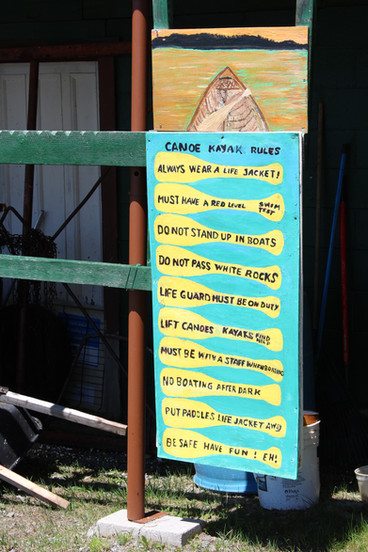 CANOE KAYAK RULES
ALWAYS WEAR A LIFE JACKET!
MUST HAVE A RED LEVEL SWIM TEST
DO NOT STAND UP IN BOATS
DO NOT PASS WHITE ROCKS
LIFE GUARD MUST BE ON DUTY
LIFT CANOES KAYAKS
MUST BE WITH A STAFF WHEN BOATING
NO BOATING AFTER DARK
PUT PADDLES LIFE JACKET AWY
BE SAFE HAVE FUN ! EH!